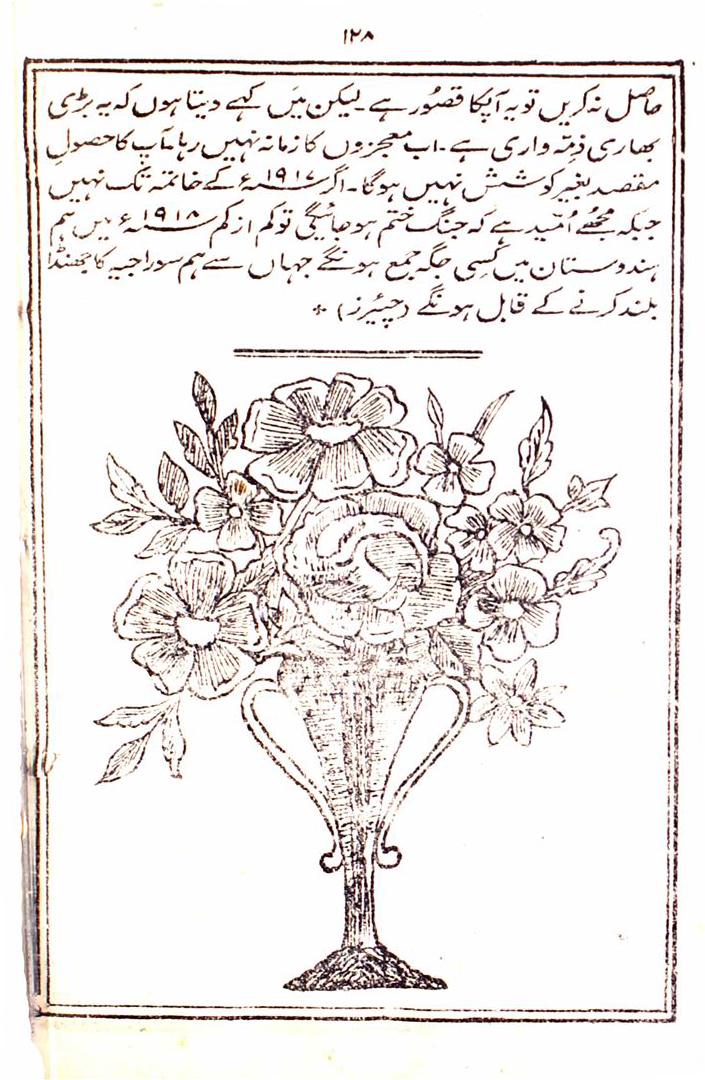 ۱۲۸
حاصل نہ کریں تو یہ آپکا قصُور ہے ۔ لیکن میَں کہے دیتا ہوں کہ یہ بڑی
بھاری ذِمّہ واری ہے ۔ اب معجزوں کا زمانہ نہیں رہا ۔ آپ کا حصولِ
مقصد بغیر کوشش نہیں ہوگا ۔ اگر ۱۹۱۷ء کے خاتمہ تک نہیں
جبکہ مجھُے اُمّید ہے کہ جنگ ختم ہو جائیگی تو کم از کم ۱۹۱۸ء میں ہم
ہندوستان میں کسِی جگہ جمع ہونگے جہاں سے ہم سوراجیہ کا جھنڈا
بلند کرنے کے قابل ہونگے (چیئرز) ٭